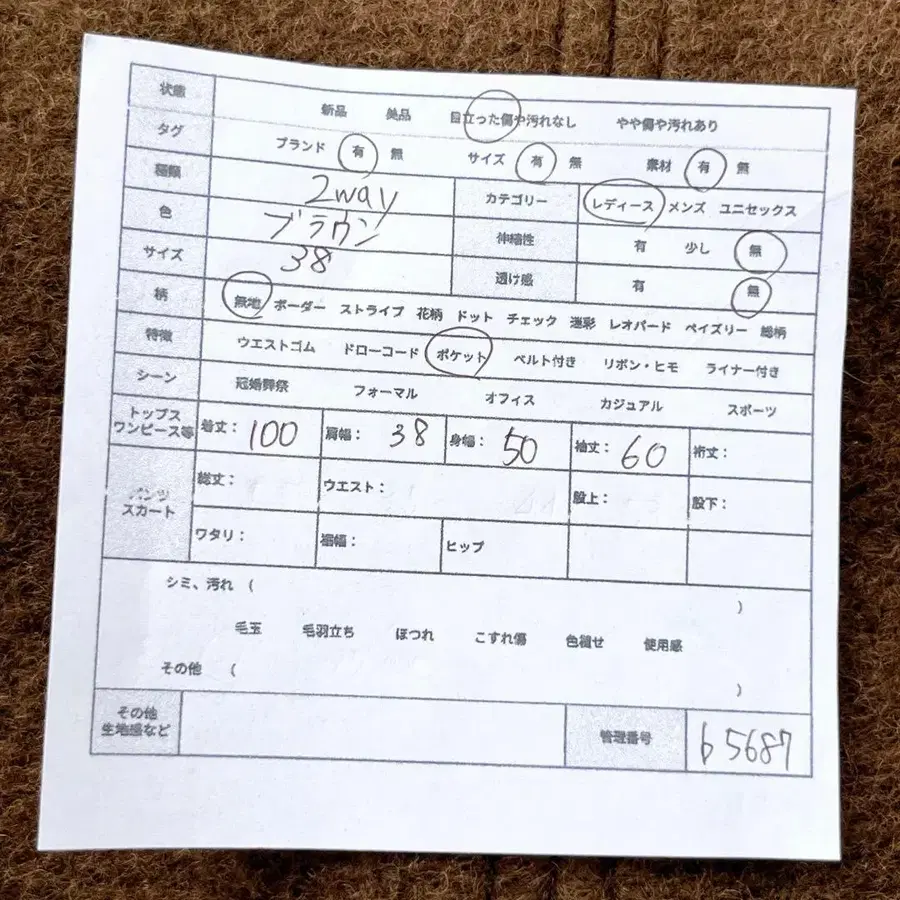 状態 新品 美品 目立った傷や汚れなし やや傷や汚れあり
タグ ブランド 有 無 サイズ 有 無 素材 有 無
種類 2way カテゴリー レディース メンズ ユニセックス
色 ブラウン 伸縮性 有 少し 無
サイズ 38 透け感 有 無
柄 無地 ボーダー ストライプ 花柄 ドット チェック 迷彩 レオパード ペイズリー 総柄
特徴 ウエストゴム ドローコード ポケット ベルト付き リボン・ヒモ ライナー付き
シーン 冠婚葬祭 フォーマル オフィス カジュアル スポーツ
トップス
ワンピース等 着丈: 100 肩幅: 38 身幅: 50 袖丈: 60 裄丈:
パンツ
スカート
総丈: ウエスト: 股上: 股下:
ワタリ: 裾幅: ヒップ
シミ、汚れ ( )
毛玉 毛羽立ち ほつれ こすれ傷 色褪せ 使用感
その他 ( )
その他
生地感など 管理番号 b5687